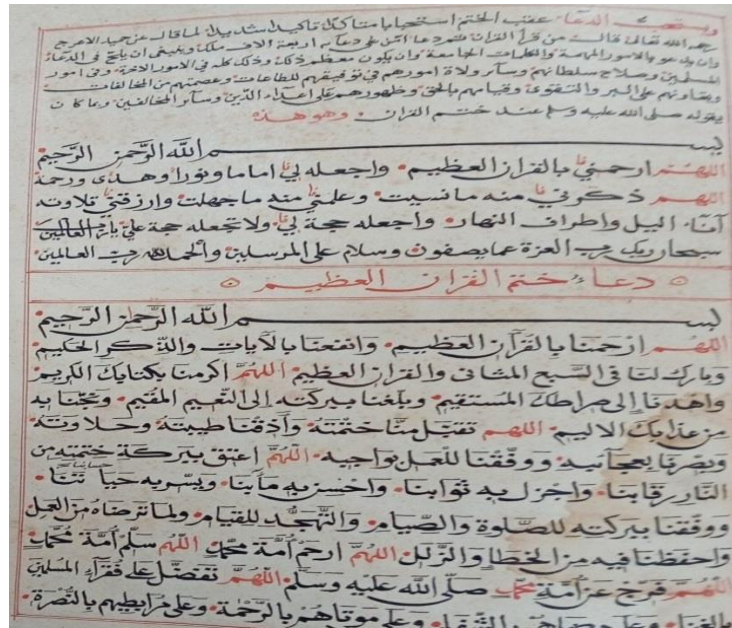 ويستحب الدعاء عقب الختم استحبابا متاكدا تاكيدا شديدا لما قال عن حميد الاعرج
رحمه الله تعالى قال من قرأ القران ثم دعا امن على دعايه اربعة الاف ملك وينبغى ان يلح في الدعاء
وان يدعو بالامور المهمة والكلمات الجامعة وان يكون معظم ذلك وذلك كله في الامور الاخرة وفى امور
المسلمين وصلاح سلطانهم وسائر ولاة امورهم في توفيقهم للطاعات وعصمتهم من المخالفات
وتعاونهم على البر والتقوى وقيامهم بالحق وظهورهم على اعداء الدين وسائر المخالفين وما كان
يقوله صلى الله عليه وسلم عند ختم القران وهو هذه
بسم الله الرحمن الرحيم
اللهم ارحمني بالقران العظيم واجعله لي اماما ونورا وهدى ورحمة
اللهم ذكرني منه ما نسيت وعلمني منه ما جهلت وارزقني تلاوته
آناء اليل واطراف النهار واجعله حجة لي ولا تجعله حجة علي يا رب العالمين
سبحان ربك رب العزة عما يصفون وسلام على المرسلين والحمد لله رب العالمين
دعاء ختم القران العظيم
بسم الله الرحمن الرحيم
اللهم ارحمنا بالقرآن العظيم وانفعنا بالآيات والذكر الحكيم
وبارك لنا في السبع المثانى والقران العظيم اللهم اكرمنا بكتابك الكريم
واهدنا إلى صراطك المستقيم وبلغنا ببركته إلى النعيم المقيم ونجنا به
من عذابك الاليم اللهم تقبل منا ختمته وأذقنا طيبته وحلاوته
وبصرنا بعجائبه ووفقنا للعمل بواجبه اللهم اعتق ببركة ختمته من
النار رقابنا واجزل به ثوابنا واحسن به مآبنا ويسر به حسابنا
ووفقنا ببركته للصلوة والصيام والتهجد للقيام ولما ترضاه من العمل
واحفظنا فيه من الخطا والزلل اللهم ارحم أمة محمد اللهم سلم أمة محمد
اللهم فرج عن أمة محمد صلى الله عليه وسلم اللهم تفضل على فقراء المسلمين
بالغنا وعلى مرضاهم بالشفا وعلى موتاهم بالرحمة وعلى مرابطيهم بالنصرة